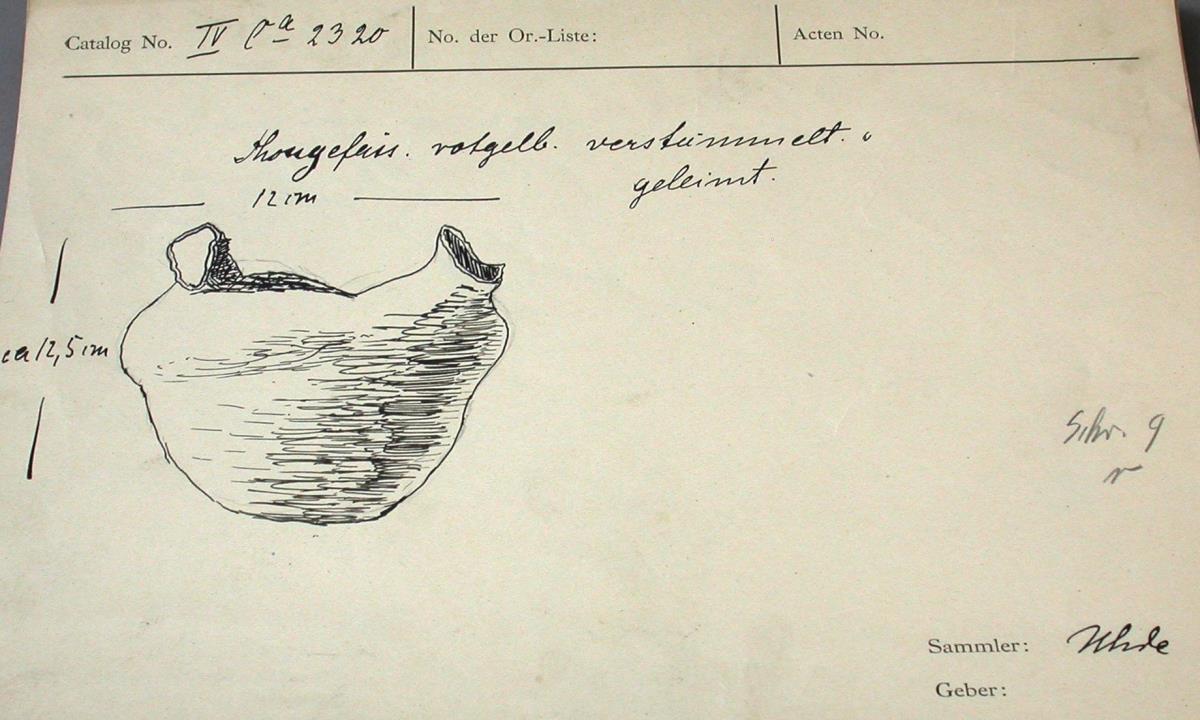 Catalog No. IV Ca 2320 No. der Or.-Liste: Acten No.
Thongefäss. rotgelb. verstümmelt.
geleimt.
12 cm
ca 12,5 cm
9
Sammler: Uhde
Geber: